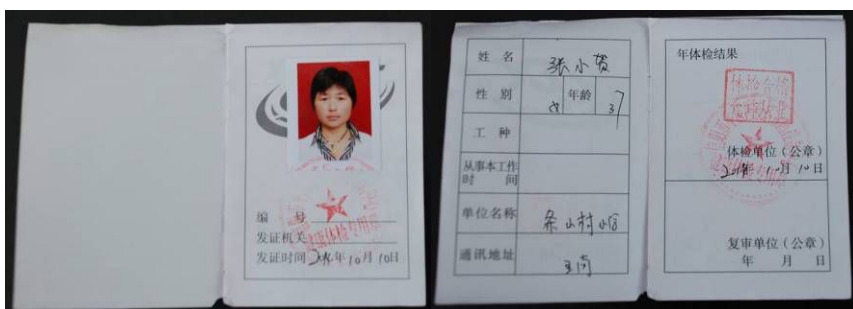 编 号
发证机关
发证时间 年10月10日
姓 名 张小
性 别 女 年龄 37
工 种
从事本工作
时 间
单位名称 村小
通讯地址 王岗
年体检结果
体检合格
体检单位（公章）
年10月10日
复审单位（公章）
年 月 日